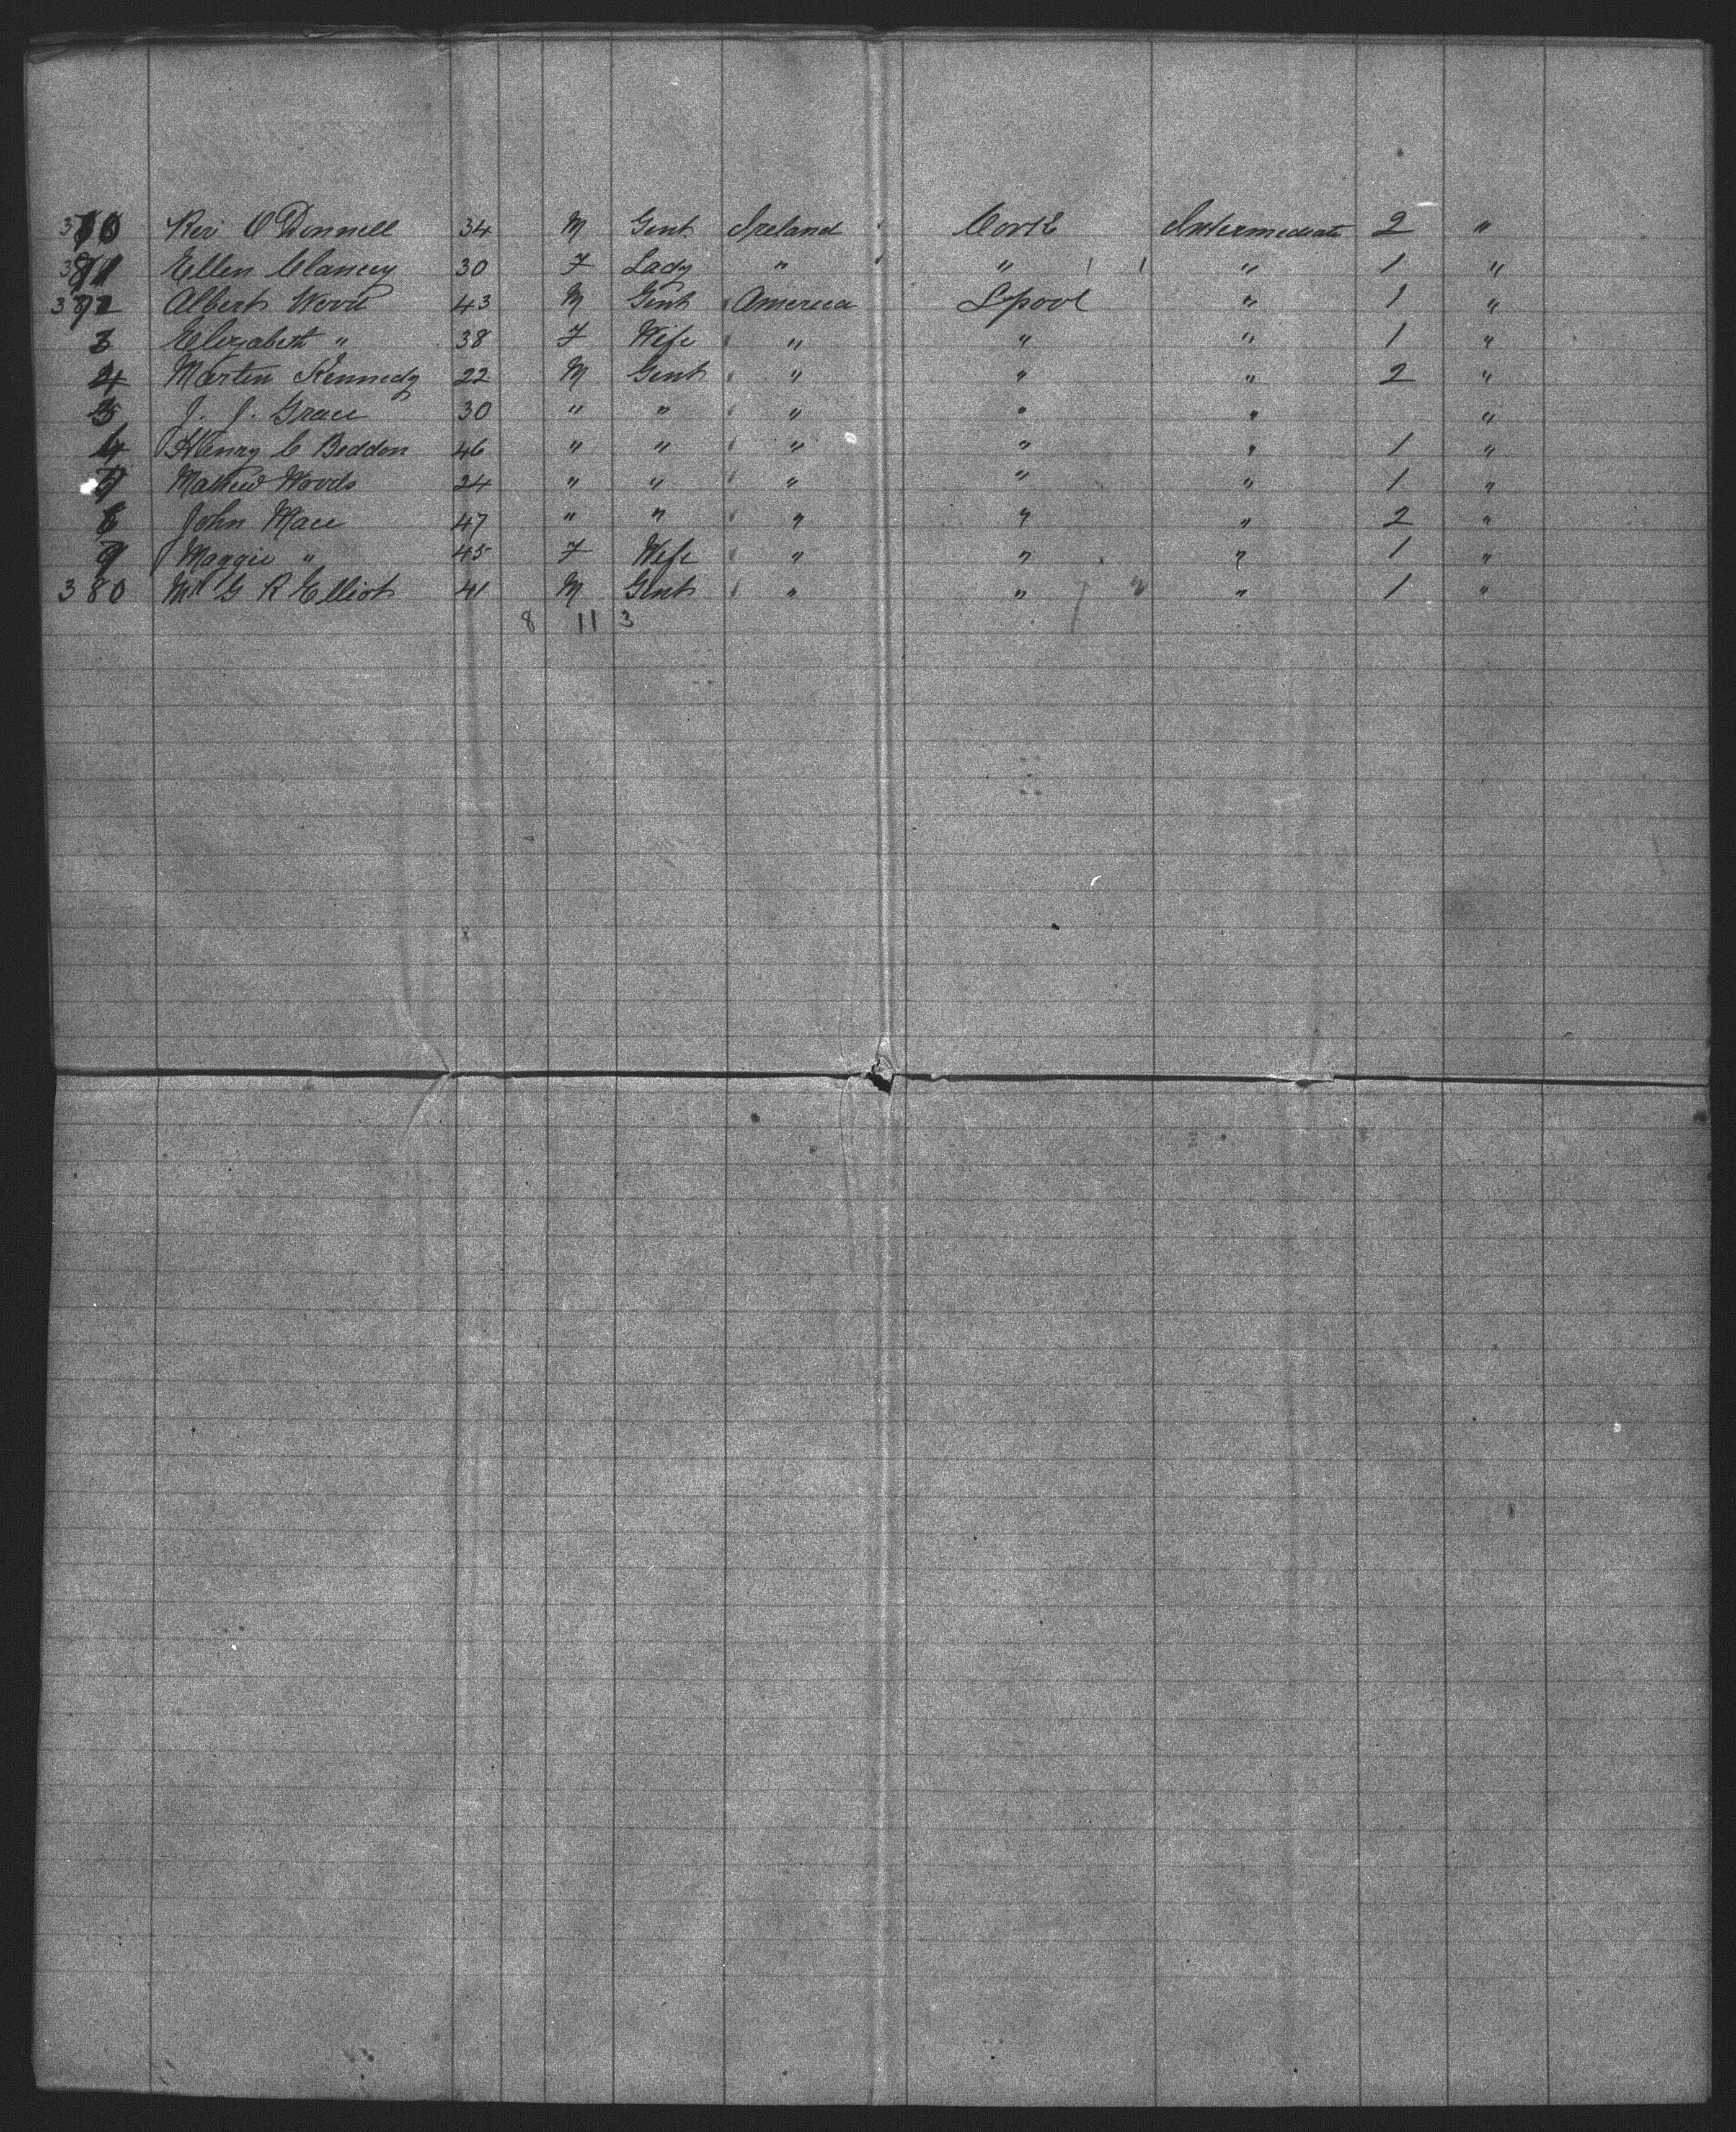 370 Rev O'Donnell 34 M Gent Ireland Cork Intermediate 2 "
371 Ellen Clancey 30 F Lady " " " 1 "
372 Albert Wood 43 M Gent America Lpool " 1 "
3 Elizabeth " 38 F Wife " " " 1 "
4 Martin Kennedy 22 M Gent " " " 2 "
5 J. J. Grace 30 " " " " " "
6 Henry C Beddon 46 " " " " " 1 "
7 Mathew Woods 24 " " " " " 1 "
8 John Mace 47 " " " " " 2 "
9 Maggie " 45 F Wife " " " 1 "
380 Mr G R Elliot 41 M Gent " " " 1 "
8 11 3